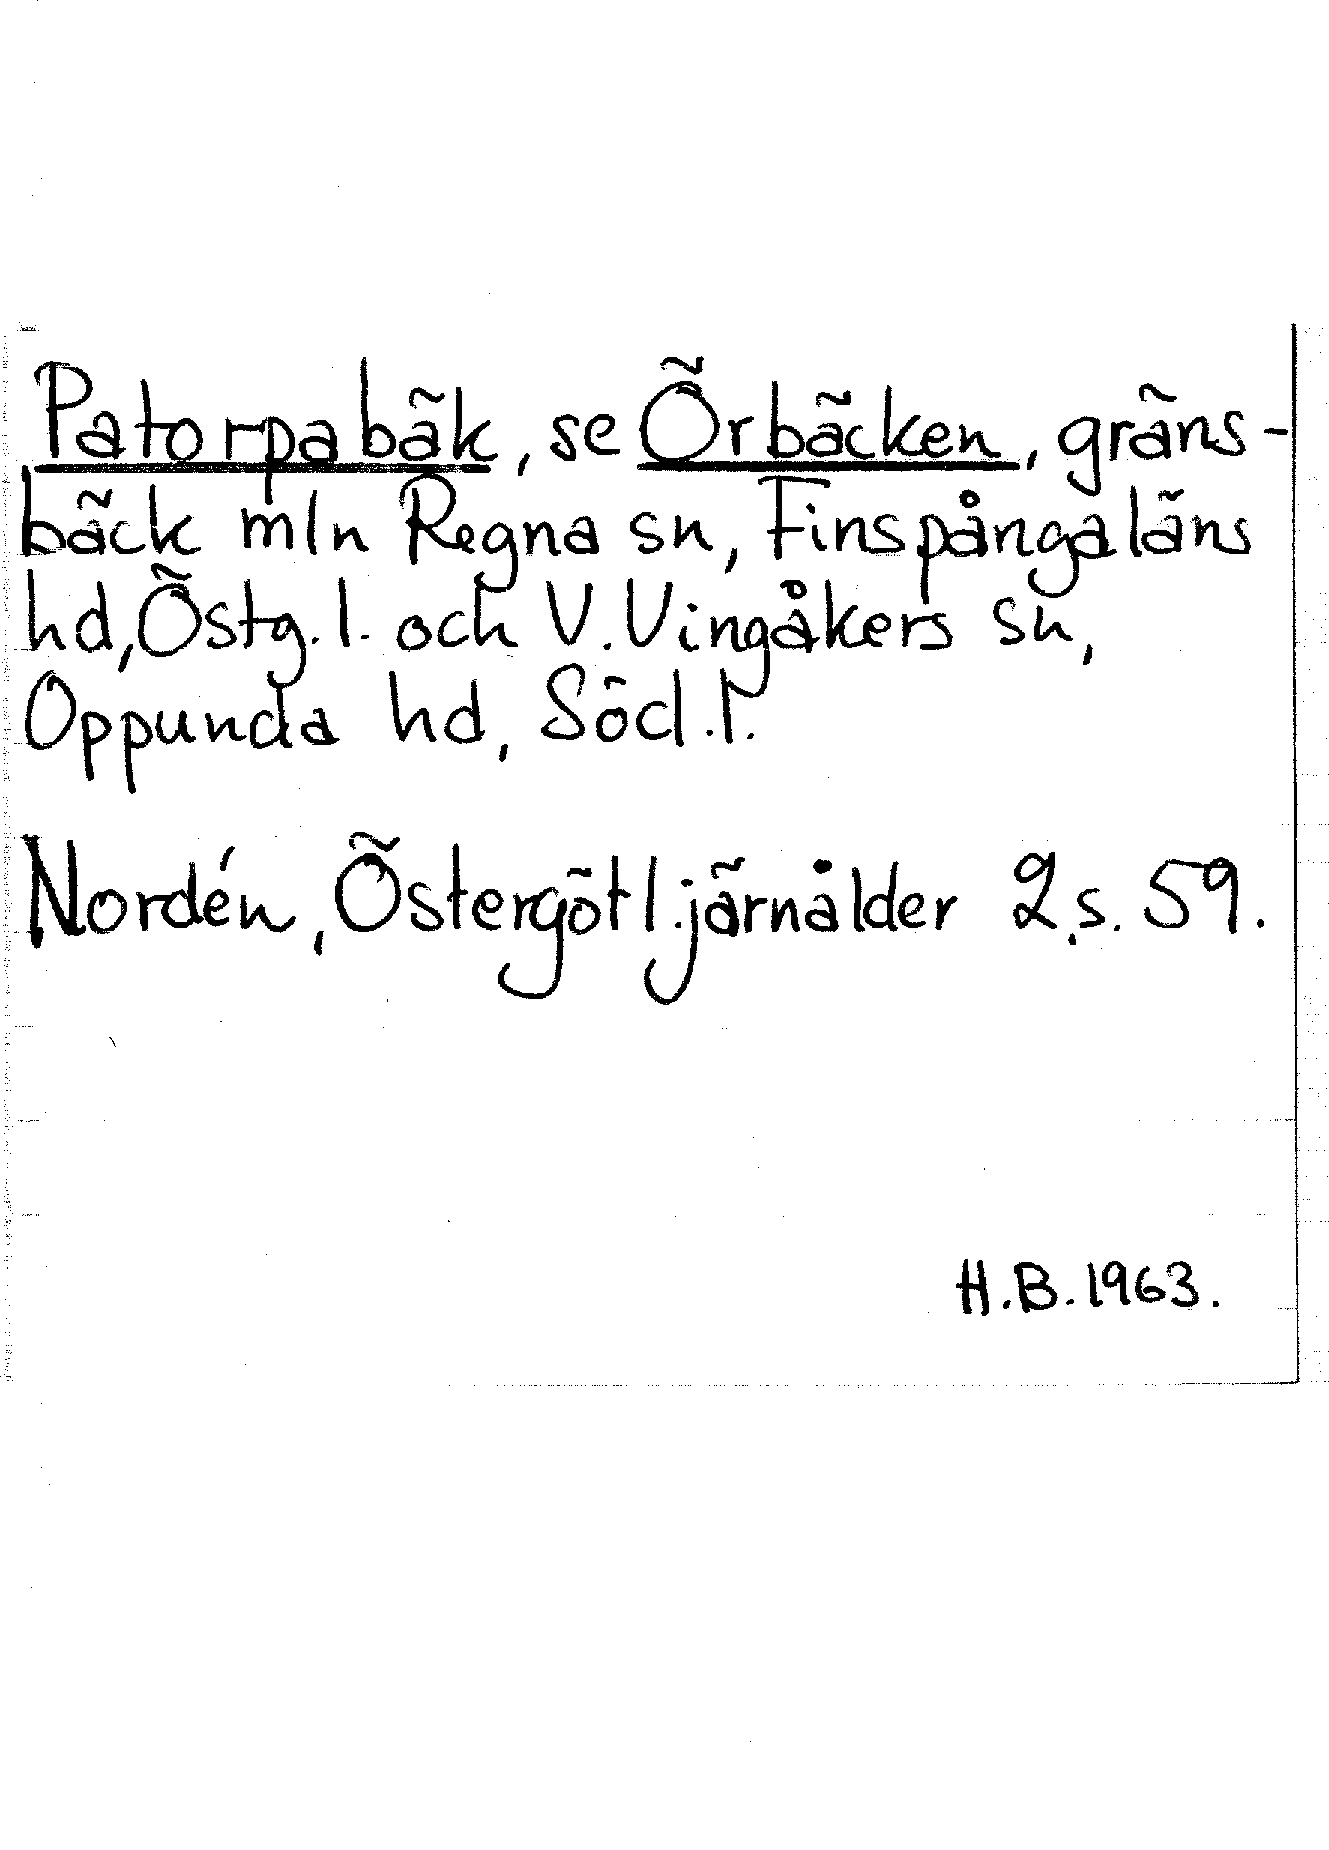 Patorpabäk, se Örbäcken, gräns-
bäck mln Regna sn, Finspångaläns
hd, Östg.l. och V. Vingåkers sn,
Oppunda hd, Söd.l.
Nordén, Östergötl. järnålder 2, s. 59.
H.B. 1963.